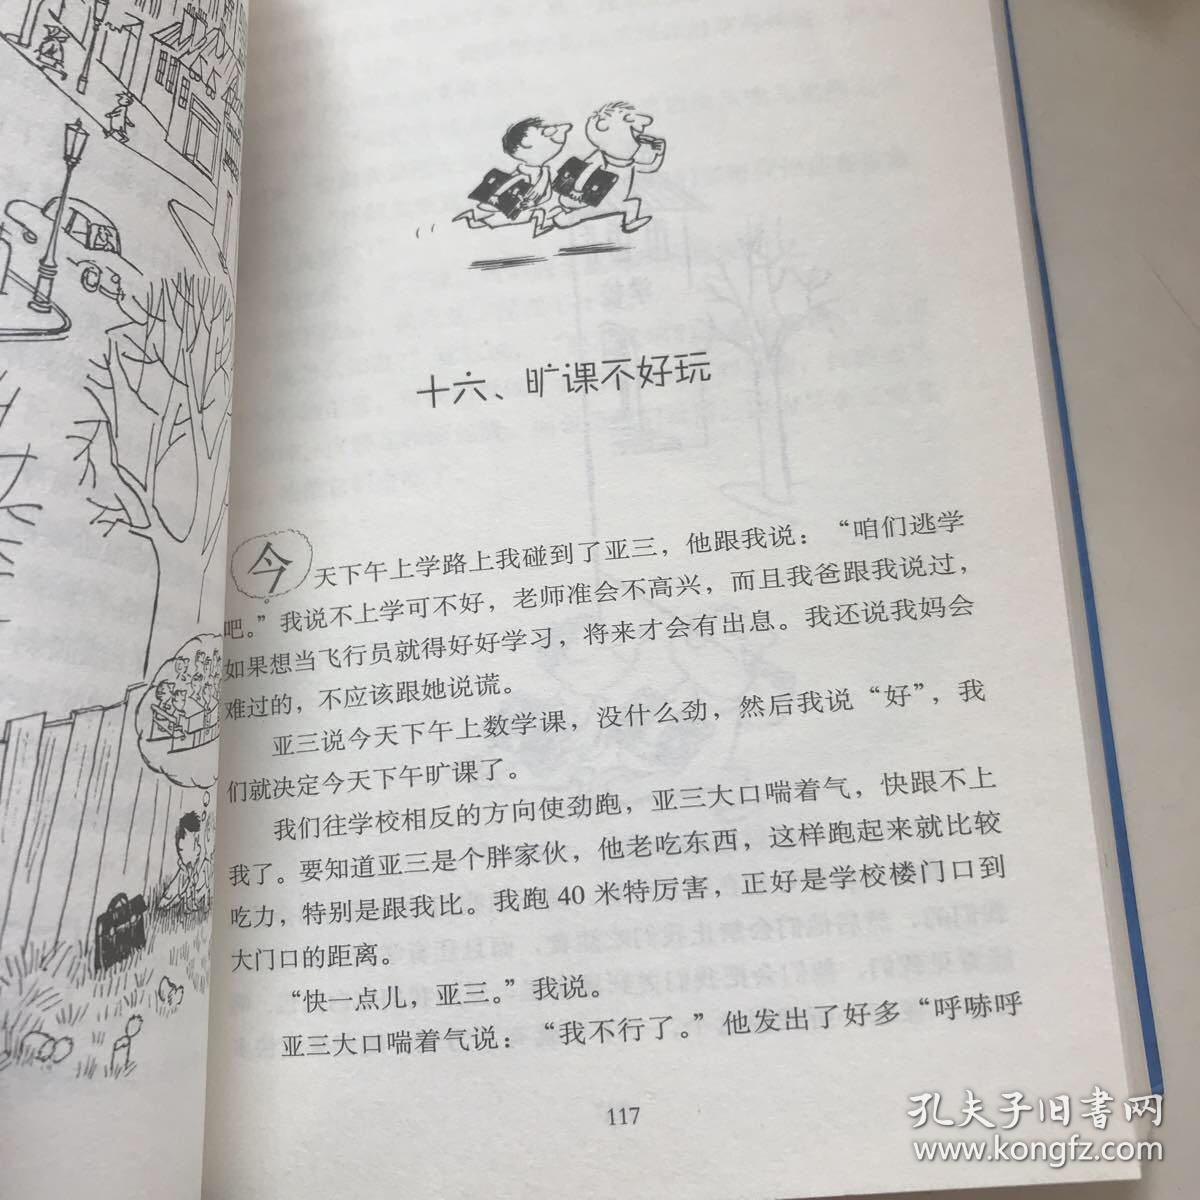 十六、旷课不好玩
今天下午上学路上我碰到了亚三，他跟我说：“咱们逃学
吧。”我说不上学可不好，老师准会不高兴，而且我爸跟我说过，
如果想当飞行员就得好好学习，将来才会有出息。我还说我妈会
难过的，不应该跟她说谎。
亚三说今天下午上数学课，没什么劲，然后我说“好”，我
们就决定今天下午旷课了。
我们往学校相反的方向使劲跑，亚三大口喘着气，快跟不上
我了。要知道亚三是个胖家伙，他老吃东西，这样跑起来就比较
吃力，特别是跟我比。我跑40米特厉害，正好是学校楼门口到
大门口的距离。
“快一点儿，亚三。”我说。
亚三大口喘着气说：“我不行了。”他发出了好多“呼哧呼
117
孔夫子旧书网
www.kongfz.com